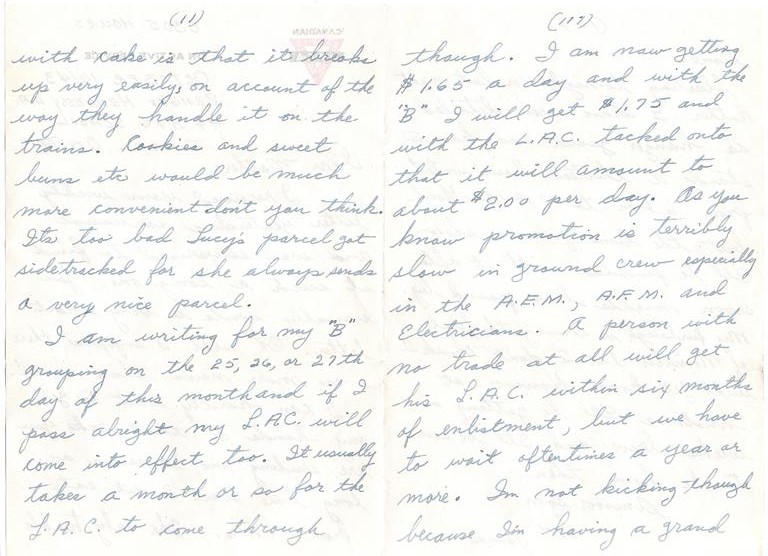 (11)
with cake is that it breaks
up very easily, on account of the
way they handle it on the
trains. Cookies and sweet
buns etc would be much
more convenient don't you think.
Its too bad Lucy's parcel got
sidetracked for she always sends
a very nice parcel.
I am writing for my "B"
grouping on the 25, 26, or 27th
day of this month and if I
pass alright my L.A.C. will
come into effect too. It usually
takes a month or so for the
L.A.C. to come through
though. I am now getting
$1.65 a day and with the
"B" I will get $1.75 and
with the L.A.C. tacked onto
that it will amount to
about $2.00 per day. As you
know promotion is terribly
slow in ground crew especially
in the A.E.M., A.F.M. and
Electricians. A person with
no trade at all will get
his L.A.C. within six months
of enlistment, but we have
to wait oftentimes a year or
more. I'm not kicking though
because I'm having a grand